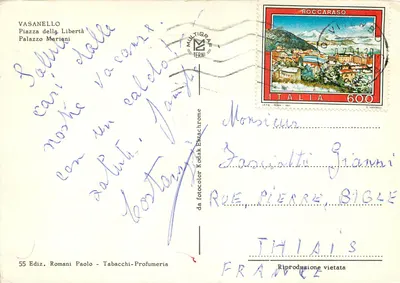 VASANELLO
Piazza della Libertà
Palazzo Mariani
MULTIGRAF
ROCCARASO
ITALIA 600
Saluti
cari dalle
nostre vacanze.
con un caldo,
saluti.
da fotocolor Kodak Ektachrome
Monsieur
Fasciatti Gianni
RUE, PIERRE, BIGLE
THIAIS
FRANCE
55 Ediz. Romani Paolo - Tabacchi-Profumeria
Riproduzione vietata